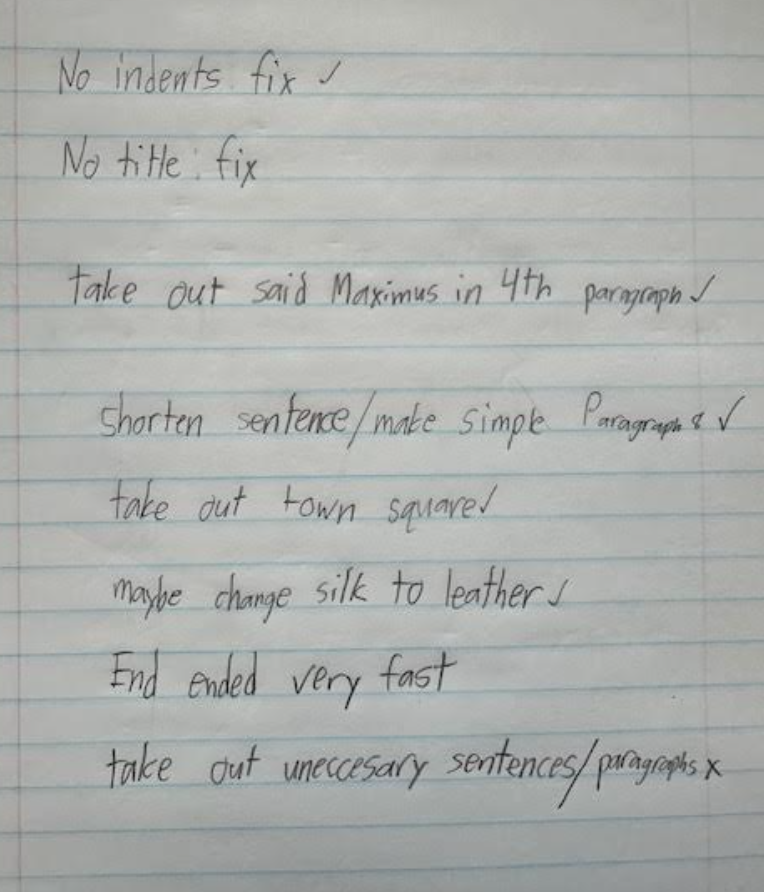 No indents fix ✓
No title: fix
take out said Maximus in 4th paragraph ✓
shorten sentence/make simple Paragraph 8 ✓
take out town square ✓
maybe change silk to leather ✓
End ended very fast
take out uneccesary sentences/paragraphs x